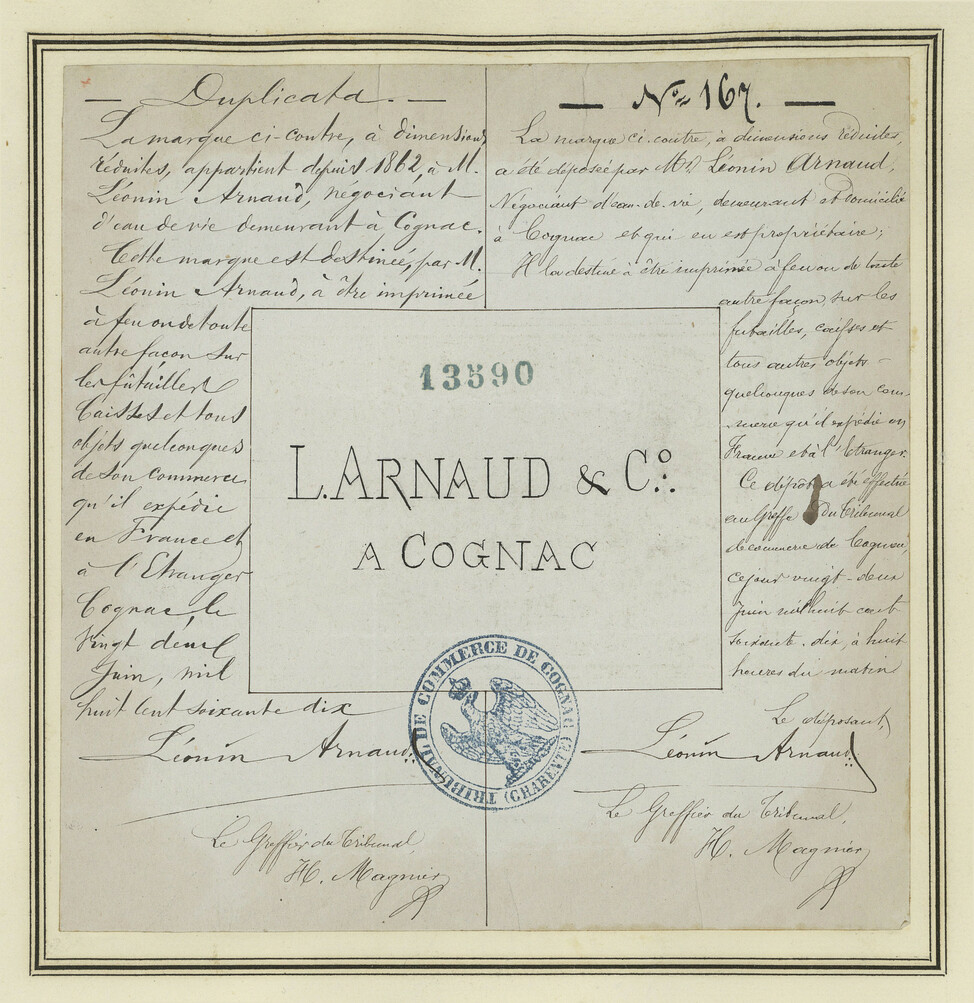 — Duplicata. —
La marque ci-contre, à dimensions
réduites, appartient depuis 1862, à M.
Léonin Arnaud, négociant
d'eau de vie demeurant à Cognac.
Cette marque est destinée, par M.
Léonin Arnaud, à être imprimée
à feu ou de toute
autre facon sur
les fûtailles
Caisses et tous
objets quelconques
de son commerce
qu'il expédie
en France et
à l'Etranger
Cognac, le
Vingt deux
Juin, mil
huit cent soixante dix
Léonin Arnaud
Le Greffier du Tribunal,
H. Magnier
— No 167. —
La marque ci-contre, à dimensions réduites,
a été déposée par Mr Léonin Arnaud,
Négociant d'eau-de-vie, demeurant et domicilié
à Cognac et qui en est propriétaire;
Il la destine à être imprimée à feu ou de toute
autre façon, sur les
futailles, caisses et
tous autres objets
quelconques de son com-
merce qu'il expédie en
France et à l'Etranger.
Ce dépôt a été effectué
au Greffe du Tribunal
de commerce de Cognac,
ce jour vingt-deux
juin mil huit cent
soixante-dix, à huit
heures du matin
Le déposant,
Léonin Arnaud
Le Greffier du Tribunal,
H. Magnier
13590
L. ARNAUD & Co.
A COGNAC
TRIBUNAL DE COMMERCE DE COGNAC (CHARENTE)